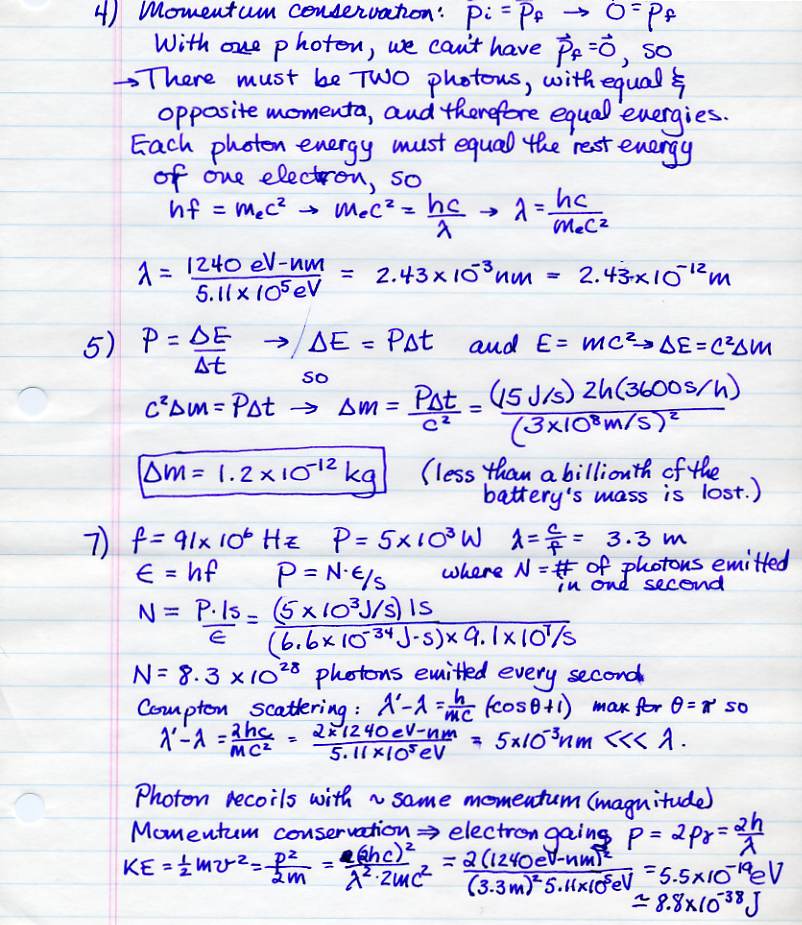 4) Momentum conservation: p⃗i = p⃗f → 0⃗ = p⃗f
With one photon, we can't have p⃗f = 0⃗, so
→ There must be TWO photons, with equal &
opposite momenta, and therefore equal energies.
Each photon energy must equal the rest energy
of one electron, so
hf = mₑc² → mₑc² = hc/λ → λ = hc/mₑc²
λ = 1240 eV-nm / 5.11 x 10⁵ eV = 2.43 x 10⁻³ nm = 2.43 x 10⁻¹² m
5) P = ΔE/Δt → ΔE = PΔt and E = mc² → ΔE = c²Δm
so
c²Δm = PΔt → Δm = PΔt/c² = (15 J/s) 2h(3600 s/h) / (3x10⁸ m/s)²
Δm = 1.2 x 10⁻¹² kg (less than a billionth of the
battery's mass is lost.)
7) f = 91 x 10⁶ Hz P = 5 x 10³ W λ = c/f = 3.3 m
ϵ = hf P = N·ϵ/s where N = # of photons emitted
in one second
N = P·1s/ϵ = (5 x 10³ J/s) 1s / (6.6 x 10⁻³⁴ J-s) x 9.1 x 10⁷/s
N = 8.3 x 10²⁸ photons emitted every second
Compton scattering: λ'-λ = h/mc (cosθ+1) max for θ = π so
λ'-λ = 2hc/mc² = 2x1240 eV-nm / 5.11 x 10⁵ eV = 5x10⁻³ nm <<< λ.
Photon recoils with ~ same momentum (magnitude)
Momentum conservation ⇒ electron gains p = 2pγ = 2h/λ
KE = ½mv² = p²/2m = (2hc)²/λ²·2mc² = 2(1240 eV-nm)² / (3.3m)² 5.11x10⁵ eV = 5.5 x 10⁻¹⁹ eV
≃ 8.8 x 10⁻³⁸ J